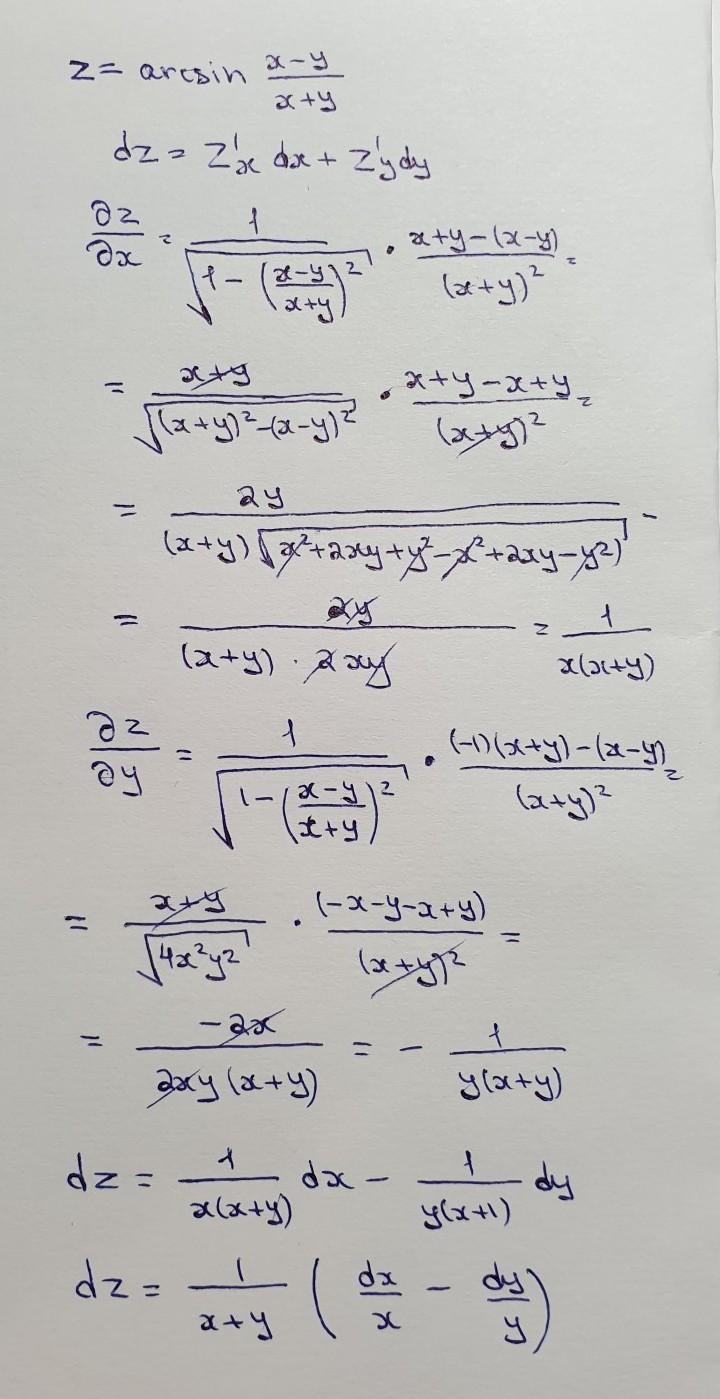 z = arcsin (x-y)/(x+y)
dz = z'x dx + z'y dy
∂z/∂x = 1/√(1-((x-y)/(x+y))²) · (x+y-(x-y))/(x+y)² =
= (x+y)/√((x+y)²-(x-y)²) · (x+y-x+y)/(x+y)² =
= 2y/((x+y)√(x²+2xy+y²-x²+2xy-y²)) =
= 2y/((x+y) · 2xy) = 1/(x(x+y))
∂z/∂y = 1/√(1-((x-y)/(x+y))²) · ((-1)(x+y)-(x-y))/(x+y)² =
= (x+y)/√(4x²y²) · (-x-y-x+y)/(x+y)² =
= -2x/(2xy(x+y)) = - 1/(y(x+y))
dz = 1/(x(x+y)) dx - 1/(y(x+1)) dy
dz = 1/(x+y) (dx/x - dy/y)